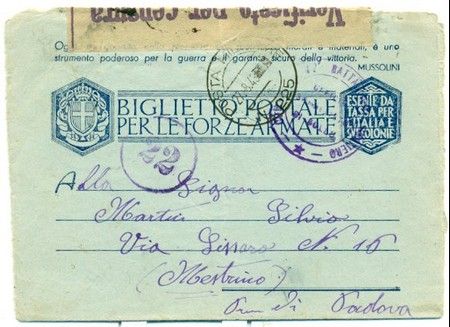 Verificato per censura
Og
e materiali, è uno
strumento poderoso per la guerra e garanzia sicura della vittoria.
MUSSOLINI
POSTA
225
BATT
NERO
BIGLIETTO POSTALE
PER LE FORZE ARMATE
ESENTE DA
TASSA PER
L'ITALIA E
SVE COLONIE
22
Alla Signor
Martin Silvio
Via Lissaro N. 16
(Mestrino)
di Padova